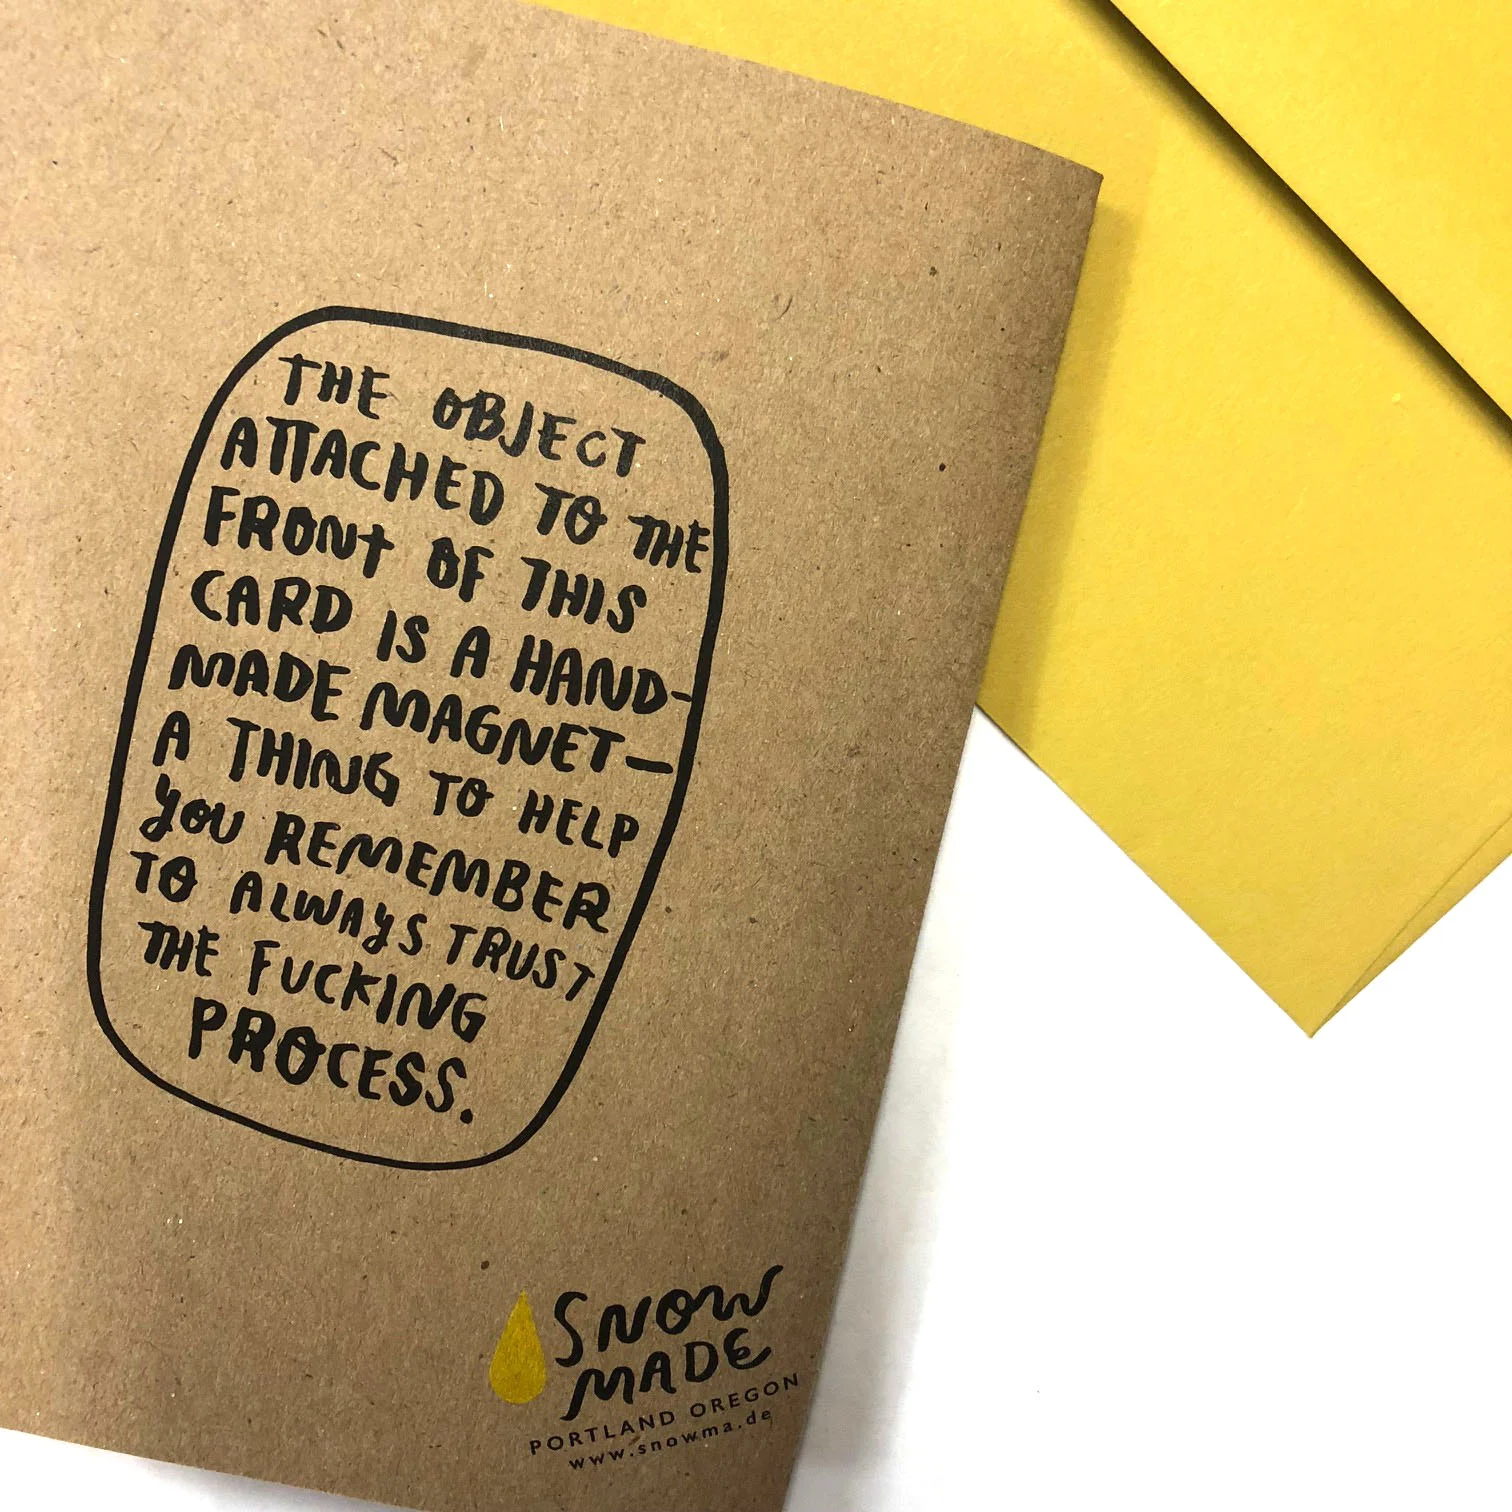 THE OBJECT
ATTACHED TO THE
FRONT OF THIS
CARD IS A HAND-
MADE MAGNET—
A THING TO HELP
YOU REMEMBER
TO ALWAYS TRUST
THE FUCKING
PROCESS.
SNOW
MADE
PORTLAND OREGON
www.snowma.de